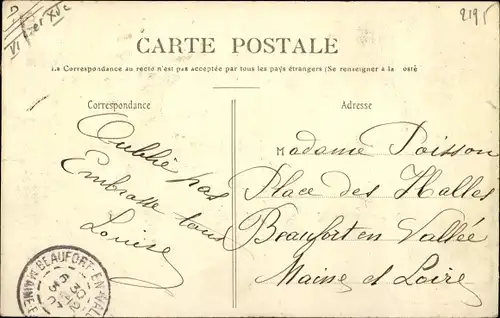 2195
CARTE POSTALE
La Correspondance au recto n'est pas acceptée par tous les pays étrangers (Se renseigner à la Poste
Correspondance
Adresse
Oublie pas
Embrasse tous
Louise
Madame Poisson
Place des Halles
Beaufort en Vallée
Maine et Loire
BEAUFORT-EN-VALLÉE
MAINE-E